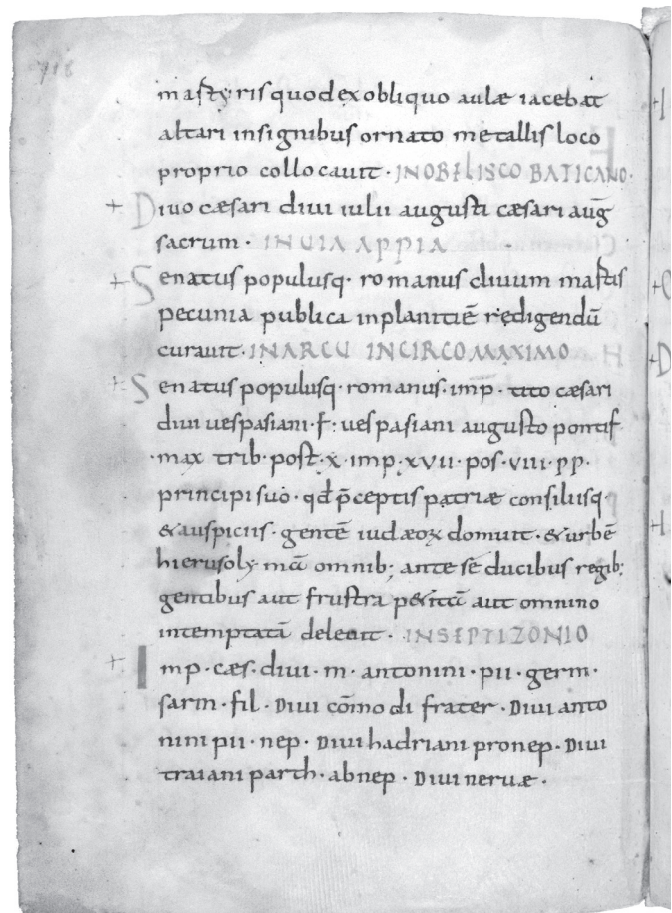 martyris quod ex obliquo aulæ iacebat
altari insignibus ornato metallis loco
proprio collocauit · IN OBELISCO BATICANO ·
+ Diuo cæsari diui iulii augusti cæsari aug̅
sacrum · IN UIA APPIA
+ Senatus populusq· romanus cliuum martis
pecunia publica in planitiē rędigendū
curauit · IN ARCU IN CIRCO MAXIMO
+ Senatus populusq· romanus · imp · tito cæsari
diui uespasiani · f · uespasiani augusto pontif
· max trib · post · x · imp · xvii · pos · viii · pp ·
principi suo · qd p̄ceptis patriæ consiliisq·
& auspiciis · gentē iudæoꝝ domuit · & urbē
hierusolymā omnib; ante se ducibus regib;
gentibus aut frustra p&itā aut omnino
intemptatā deleuit · IN SEPTIZONIO
+ Imp · cæs · diui · m · antonini · pii · germ ·
sarm · fil · Diui cōmodi frater · Diui anto
nini pii · nep · Diui hadriani pronep · Diui
traiani parth · abnep · Diui neruæ ·